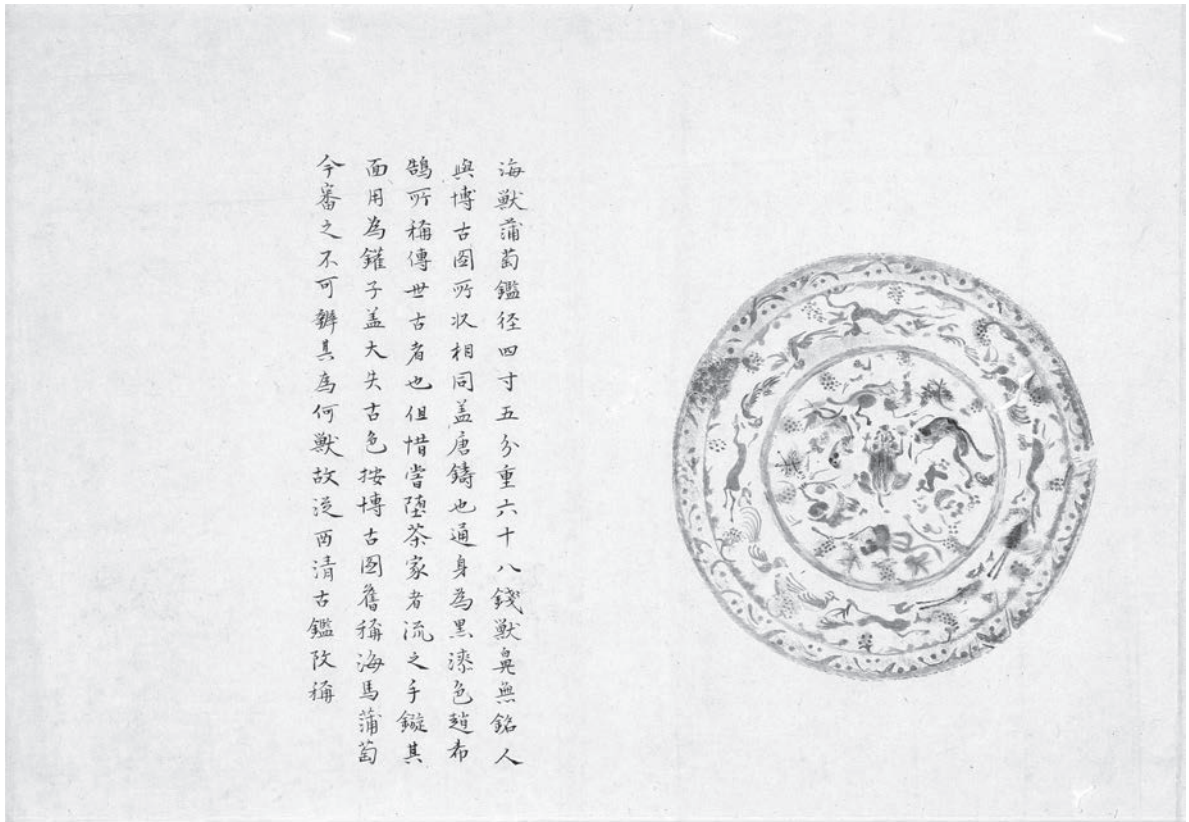 海獣蒲萄鑑径四寸五分重六十八錢獣鼻無銘人
與博古図所状相同盖唐鑄也通身為黒漆色趙希
鵠所稱傳世古者也但惜嘗堕茶家者流之手鏇其
面用為鑵子盖大失古色按博古図舊稱海馬蒲萄
今審之不可辨其為何獣故従西清古鑑改稱